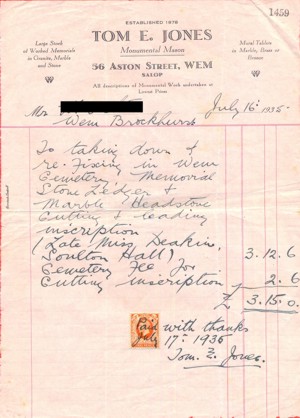 1459
ESTABLISHED 1876
TOM E. JONES
Monumental Mason
56 ASTON STREET, WEM
SALOP
Large Stock
of Worked Memorials
in Granite, Marble
and Stone
Mural Tablets
in Marble, Brass or
Bronze
All descriptions of Monumental Work undertaken at
Lowest Prices
July 16th 1936
Mrs
Wem Brockhurst
To taking down &
re-Fixing in Wem
Cemetery Memorial
Stone Ledger &
Marble Headstone
Cutting & leading
inscription
(Late Miss Deakin,
Soulton Hall) 3.12.6
Cemetery Fee for
Cutting inscription 2.6
£ 3.15.0
Paid with thanks
July 17th 1936
Tom. E. Jones.